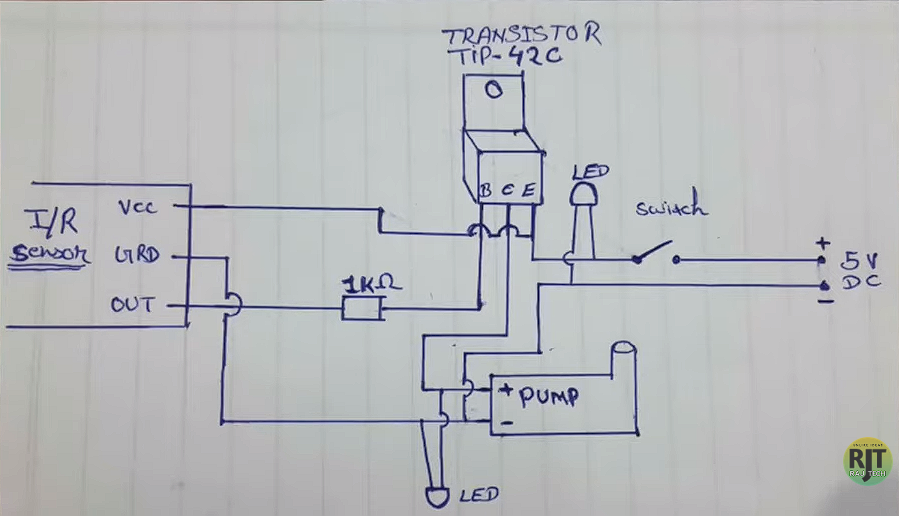 TRANSISTOR
TIP-42C
B C E
LED
Switch
+
5V
DC
-
I/R
Sensor
Vcc
GRD
OUT
1KΩ
+
PUMP
-
LED
RJT
RAJ TECH